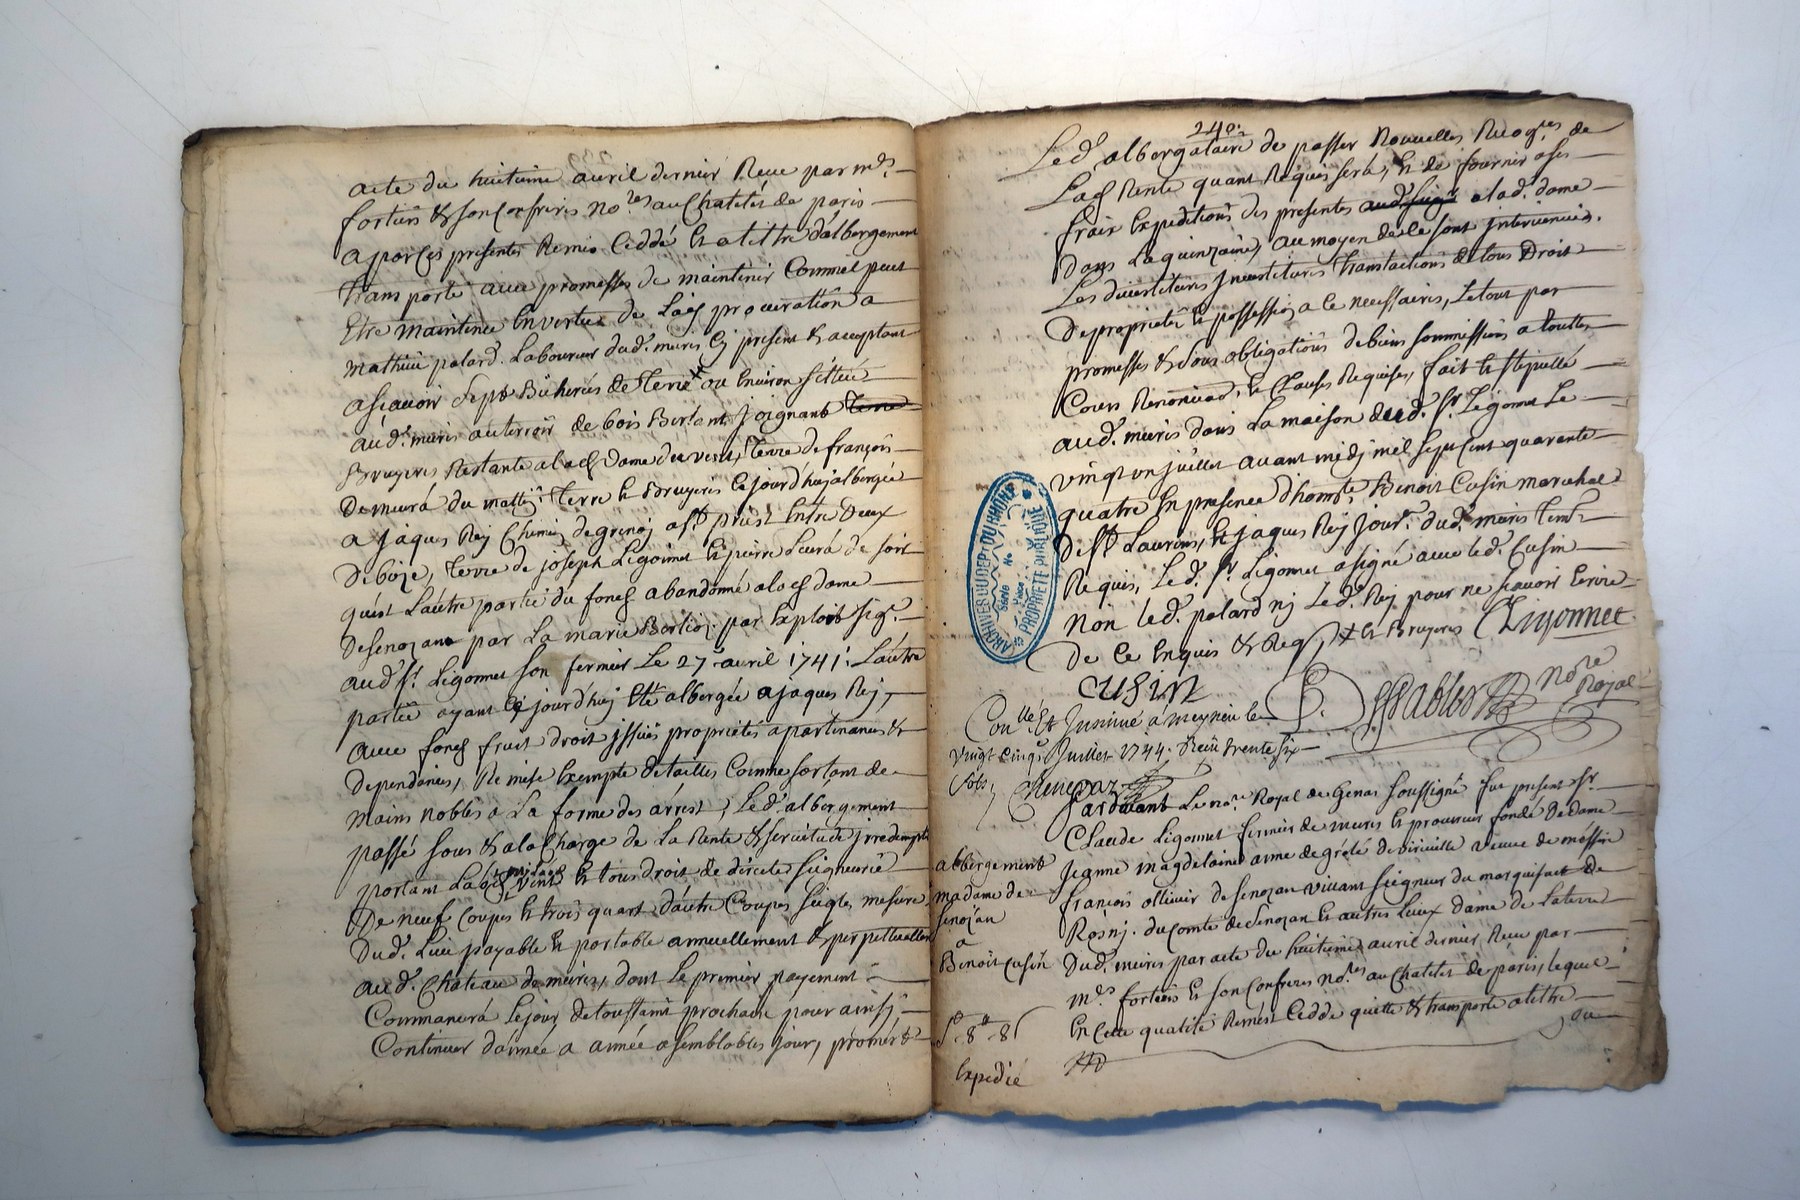 acte du huitieme auril dernier Receu par m.es
fortier & son confrere No.res au Chatelet de paris
a par ces presentes Remis Ceddé et a tittre d'albergement
transporté auec promesses de maintenir Comme il peut
Etre maintenue En vertu de Lad procuration a
mathieu palard Laboureur dud. meiris Cy present & acceptant
ascauoir sept Bicherées de Terre ou Enuiron sittuée
aud. meiris au terroir de bois joignant Terre
Bruyeres Restante alad Dame du vent, Terre de françois
Terre & Bruyeres Ce jourd'huy albergée
a jaques Rey Chemin de grenoj a
De bize, terre de joseph Ligonnet & pierre de soir
quest L'autre partie du fond abandonné alad dame
Desenozan par La marie par Exploit sig.é
aud S.r Ligonnet son fermier Le 27.e auril 1741. L'autre
partie ayant Ce jourd'huy Eté albergée a jaques Rey,
auec fond fruit droit jssües proprietés apartinances &
Dependences, Remise Exempte de tailles Comme sortant de
mains nobles a La forme des arrest, Led. albergement
passé sous & a la Charge de La Rente & seruitude jrredemptible
portant Lad et tous droit de directe seigneurie
De neuf Coupes & trois quart d'autre Coupes seigle, mesure
Dud. Lieu payable & portable annuellement & perpetuellement
aud. Chateau de meiris, dont Le premier payement
Commancera Lejour de toussaint prochaine pour ainsy
Continuer d'année a année a semblables jour, promet
240.
Led. albergataire de passer Nouuelles Recog.ces de
Lad Rente quant Requis sera, & de fournir a ses
fraix Expeditions des presentes alad. dame
Dans La quinzaine, au moyen de Ce sont Interuenües.
Les diuestitures Inuestitures translations & tous Droit
De proprietée & possession a Ce necessaires, Le tout par
promesses & sous obligations de biens soumissions a touttes
Cours Renonciad. & Clauses Requises, fait & stipullé
aud. meiris dans La maison dud. S.r Ligonnet Le
vingt un juillet auant midj mil sept cent quarante
quatre En presence d'hon.te Benoit Cusin marechal
de S.t Laurins, & jaques Rey jour.r dud. meiris Tem.s
Requis, Led. S.r Ligonnet a signé auec led. Cusin
Non led. palard nj Led. Rej pour ne scauoir Ecrire
De Ce Enquis & Req. + & Bruyeres Ligonnet
CUSIN
Sablon No.re Royal
Con.llé & Insinué a meyzieu le
vingt cinq Juillet 1744. Receu trente six
sols,
Pardeuant Le no.re Royal de Genas soussigné fut present S.r
Claude Ligonnet fermier de meiris & procureur fondé De dame
albergement
madame de
senozan
a
Benoit cusin
Jeanne magdelaine anne de grolé de virieuille veuue de messire
françois ollivier de senozan viuant seigneur du marquisact de
Rosnj. du comté de senozan & autres Lieux dame de La terre
Dud. meiris par acte du huitieme auril dernier Receu par
m.es fortiers & son Confreres no.res au Chatelet de paris, lequel
En Cette qualité Remest Cedde quitte & transporte a tittre
Expedié